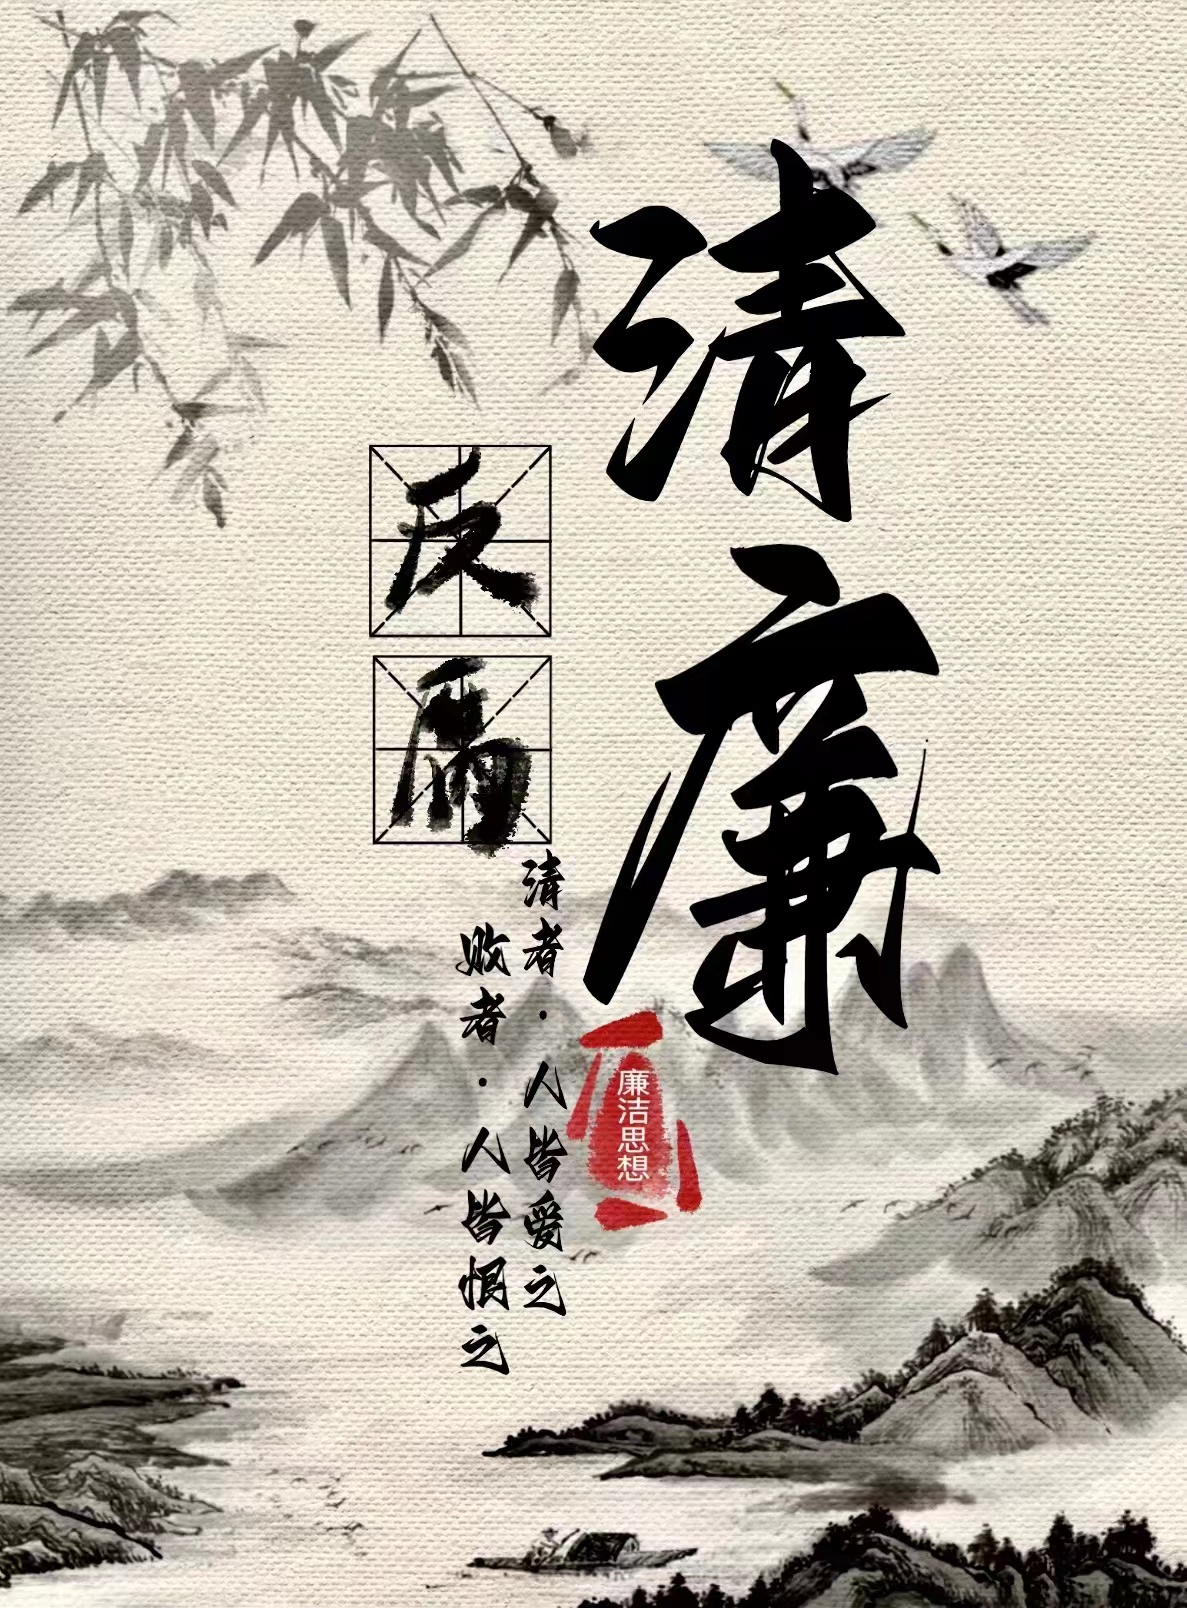 清廉
反腐
廉洁思想
清者·人皆爱之
败者·人皆恨之